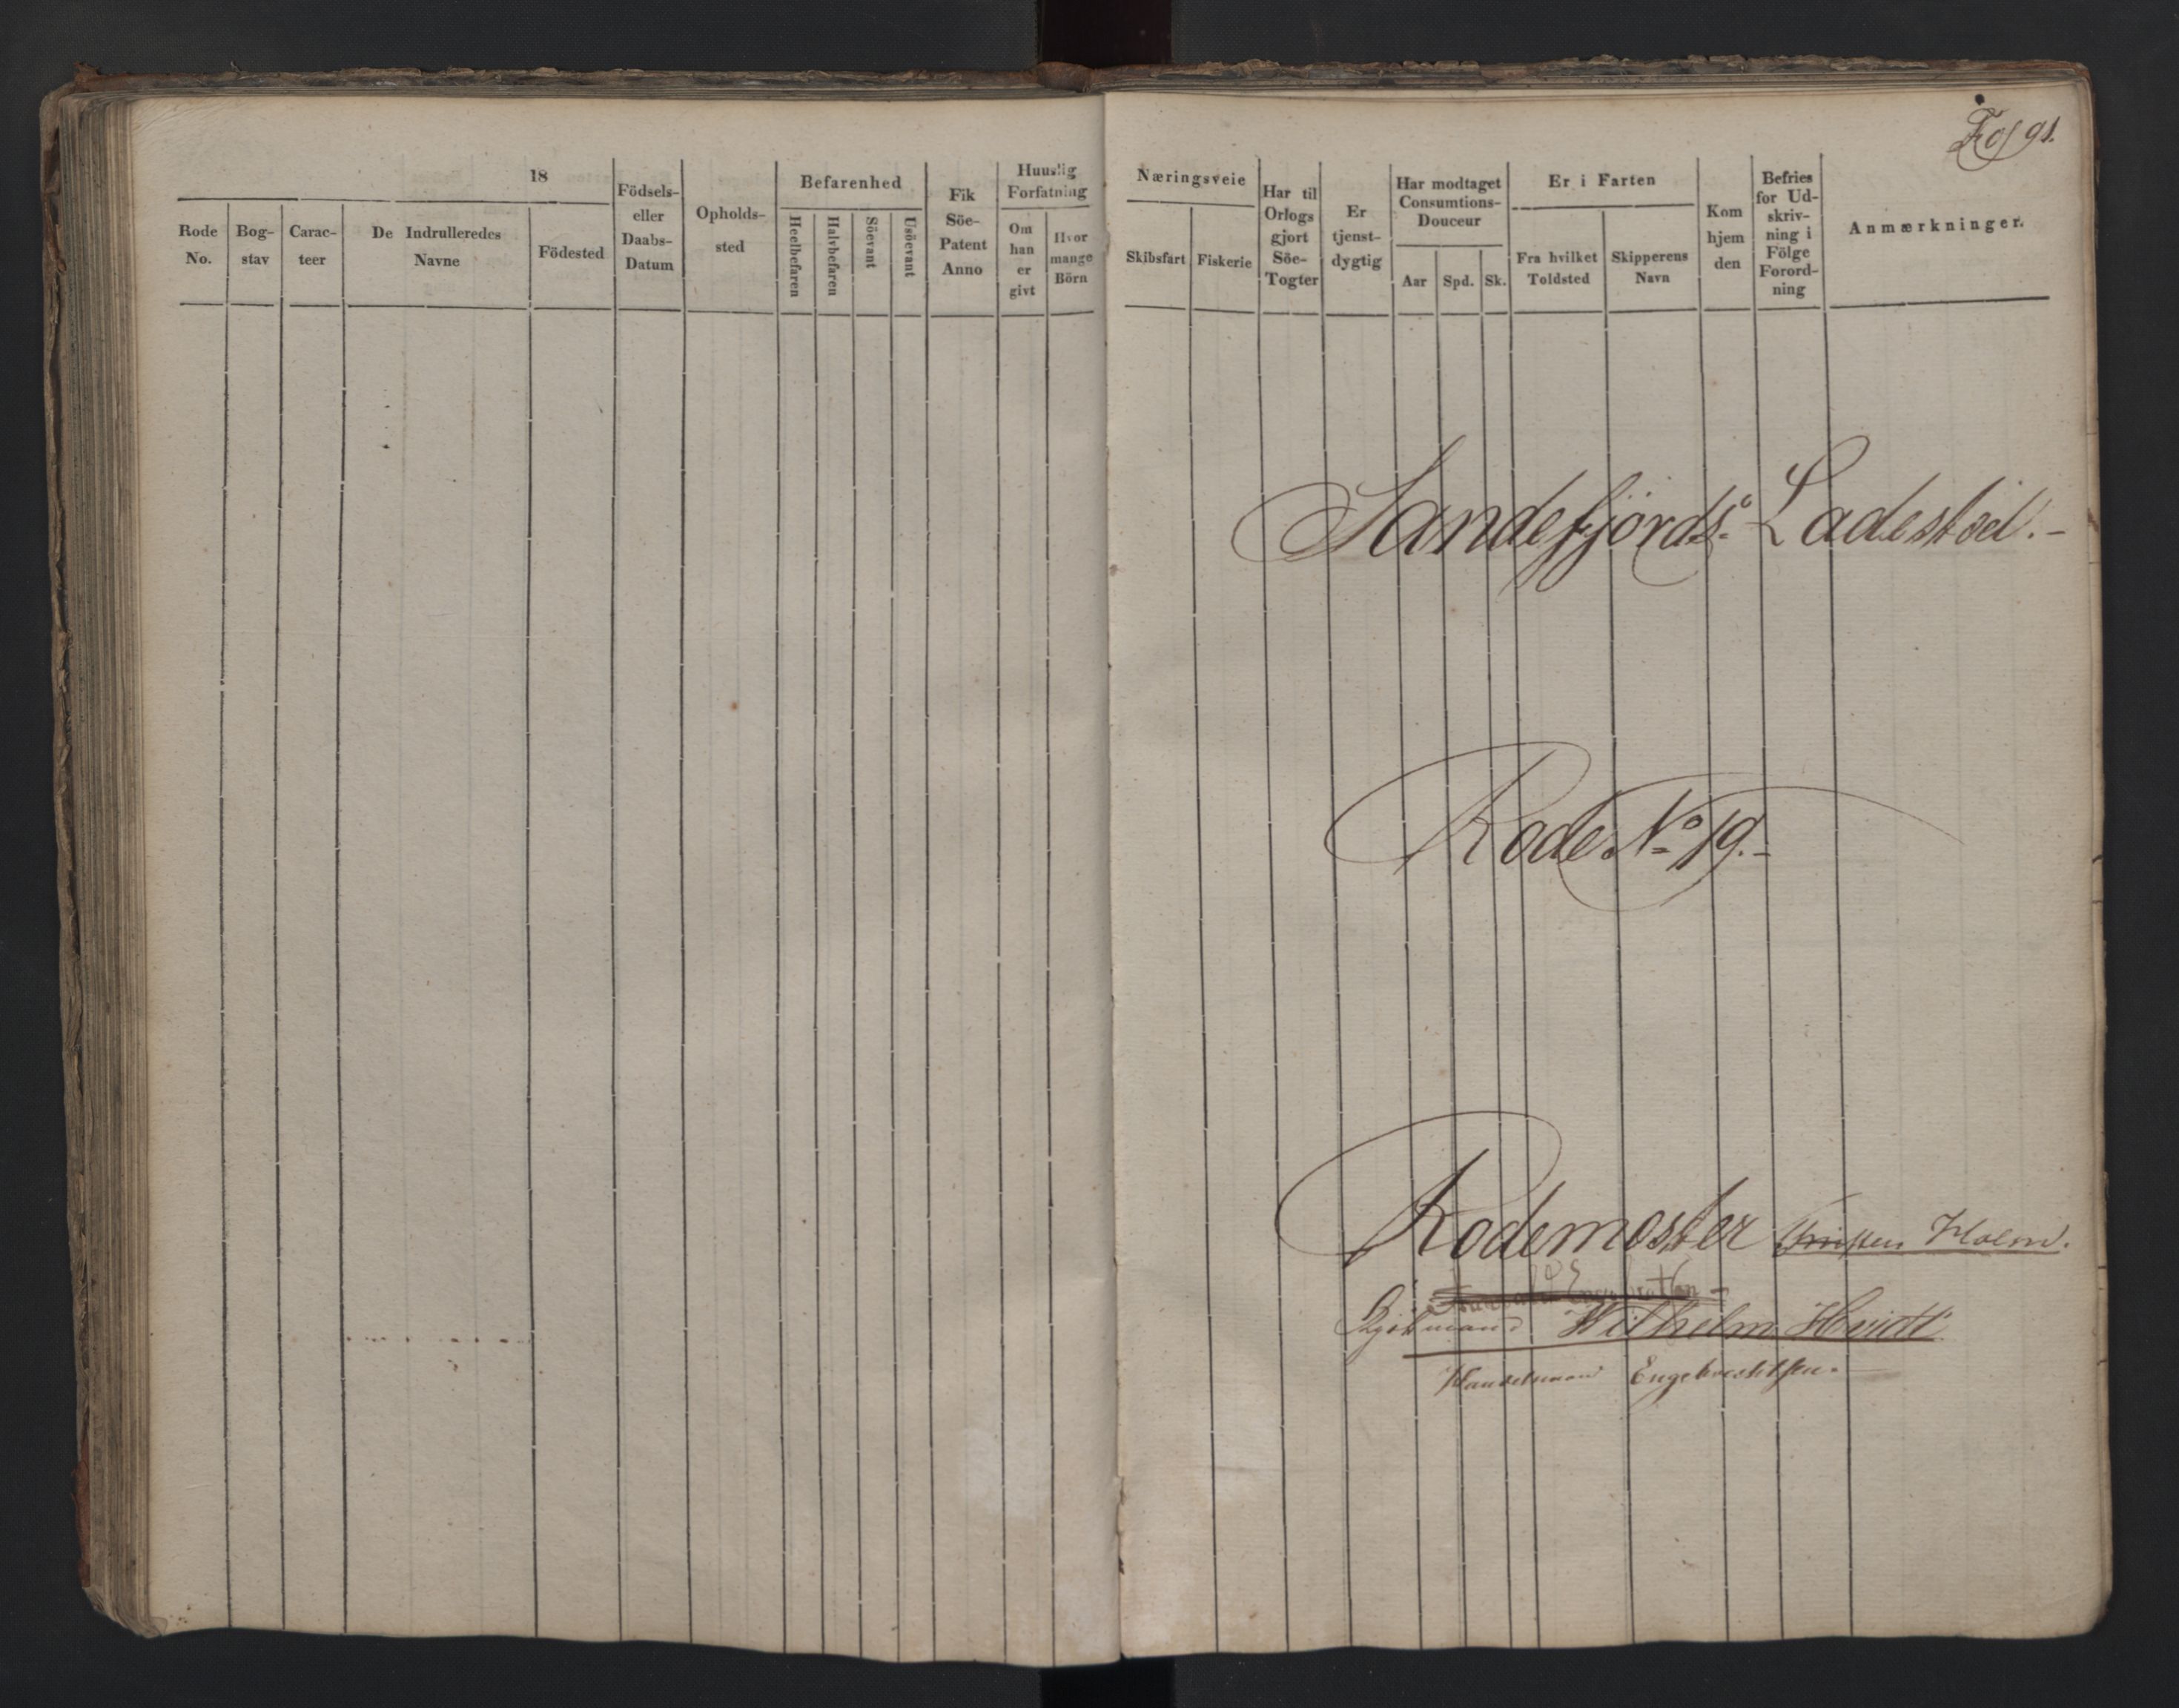 18
Rode No.
Bog-stav
Carac-teer
De Indrulleredes Navne
Födested
Födsels-eller Daabs-Datum
Opholds-sted
Befarenhed
Heelbefaren
Halvbefaren
Söevant
Usöevant
Fik Söe-Patent Anno
Huuslig Forfatning
Om han er givt
Hvor mange Börn
Fol 91.
Næringsveie
Skibsfart
Fiskerie
Har til Orlogs gjort Söe-Togter
Er tjenst-dygtig
Har modtaget Consumtions-Douceur
Aar
Spd.
Sk.
Er i Farten
Fra hvilket Toldsted
Skipperens Navn
Kom hjem den
Befries for Ud-skriv-ning i Fölge Forord-ning
Anmærkninger.
Sandefjords Ladested.-
Rode No 19.-
Rodemester Holm.
Kjöbmand Wilhelm Hvidt
Handelsmand Engebrechtsen.